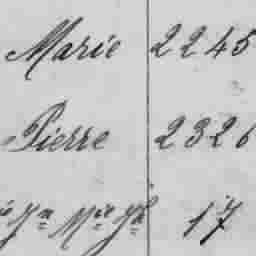 Marie 2245
Pierre 2326
Jn Mie Jh 17